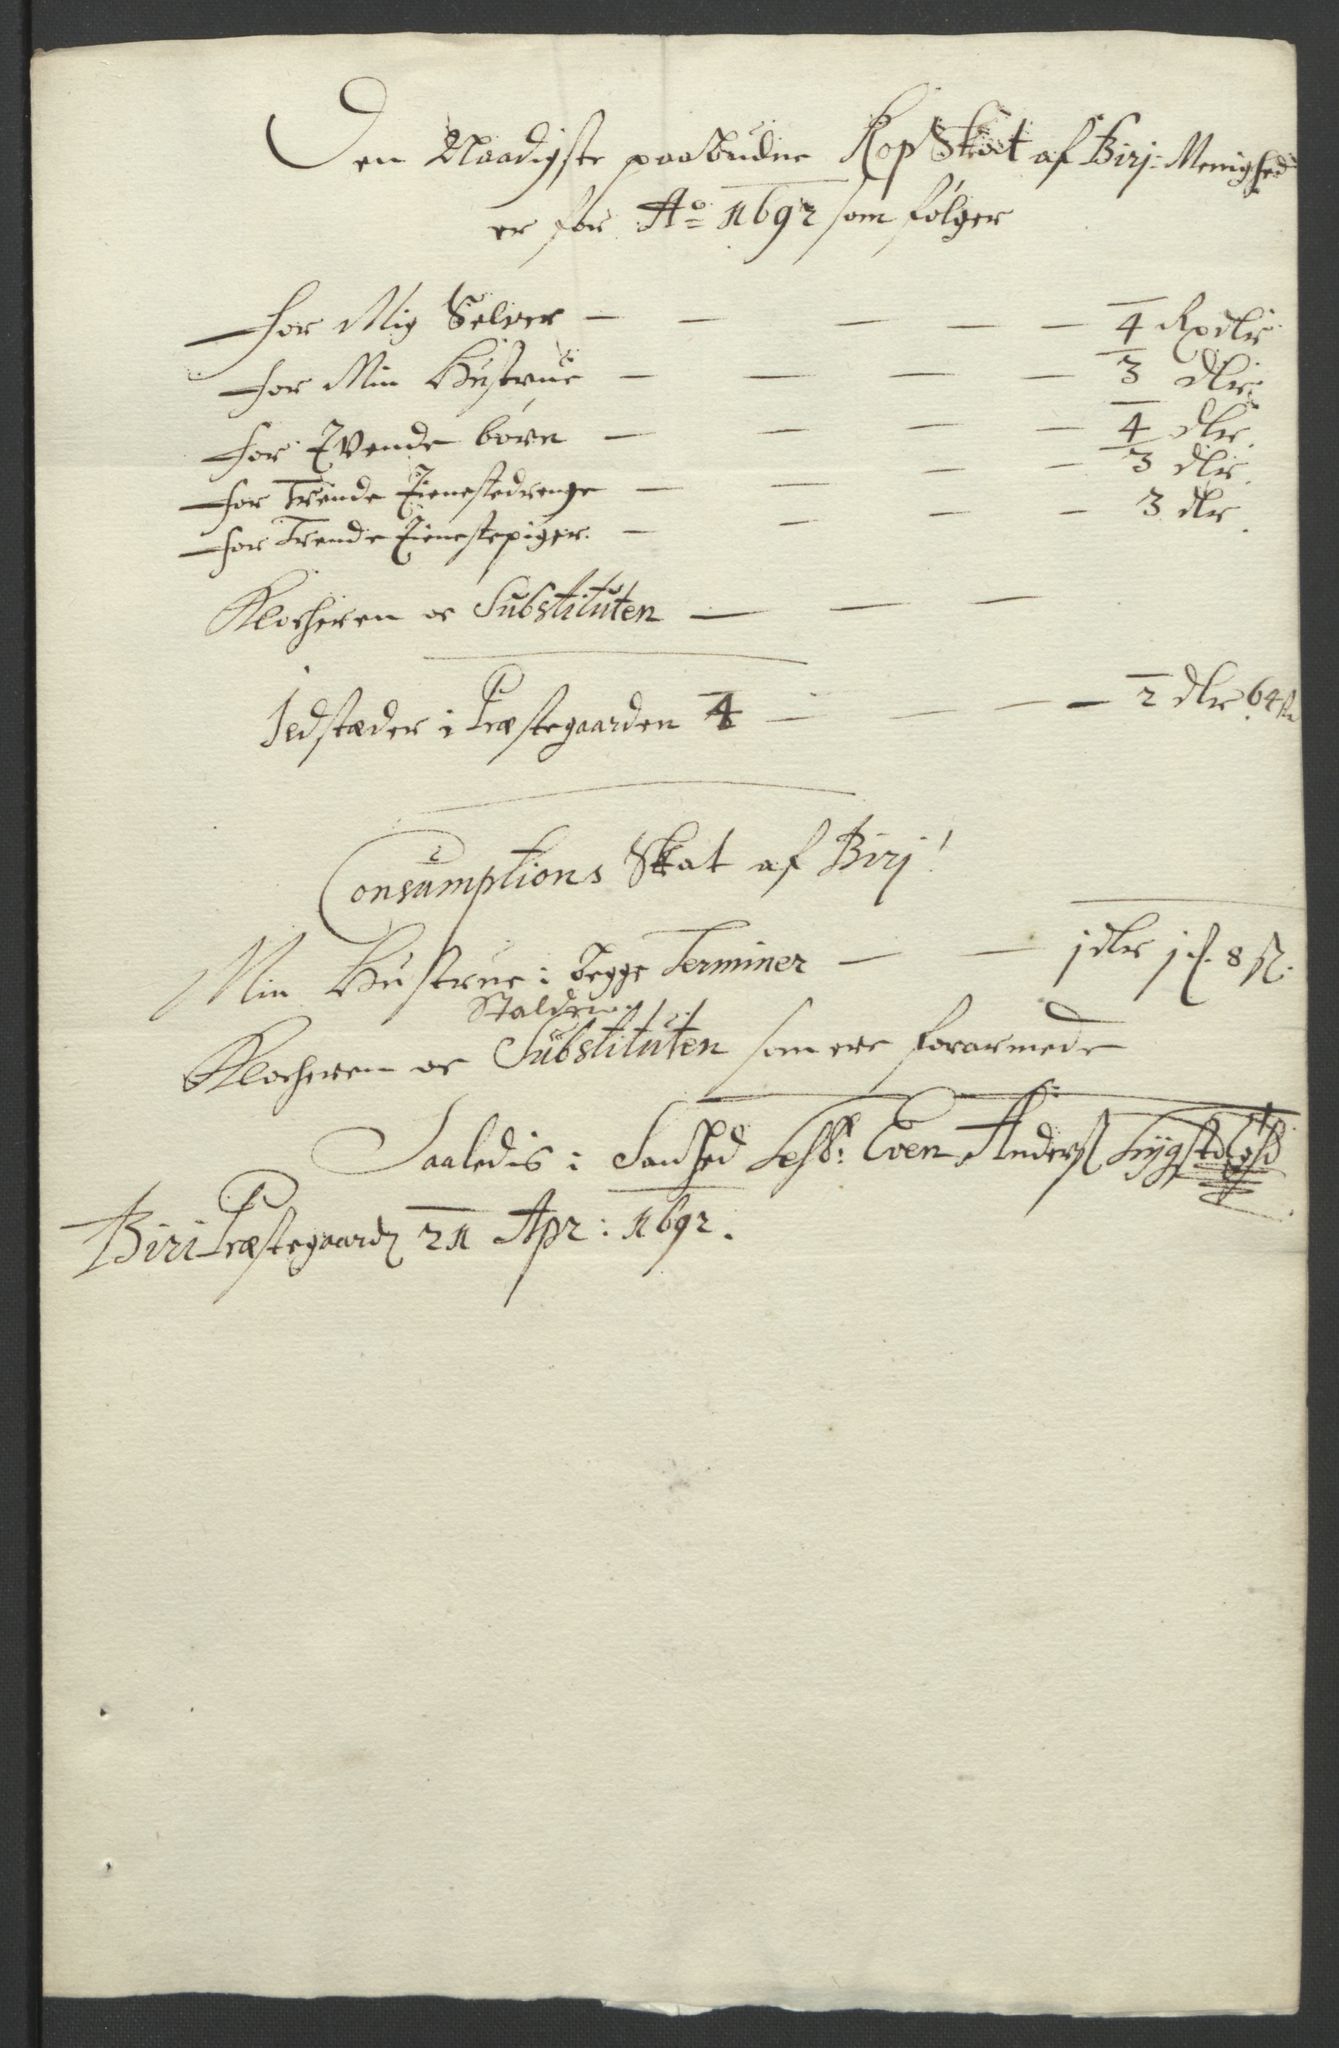 Den Naadigste paabudne KopSkat af Birj: Menighed
er for Ao 1692 som følger
for Mig Selver — — — — — 4 Rxdlr
for Min Hustrue — — — — 3 dlr
for Tvende børn — — — — 4 dlr.
for Trende Tienestedrenge — — — — 3 dlr.
for Trende Tienestepiger. — — — — 3 dlr.
Klocheren oc Substituten — — —
Ildstæder i Præstegaarden 4 — — — — 2 dlr 64 s
Consumptions Skat af Birj
Min Hustrue i begge Terminer — — 1 dlr 1 f. 8 s.
Stalden
Klocheren oc Substituten som ere forarmede
Saaledis i Sandhed Test: Even Anders
Biri Præstegaard 21 Apr: 1692.